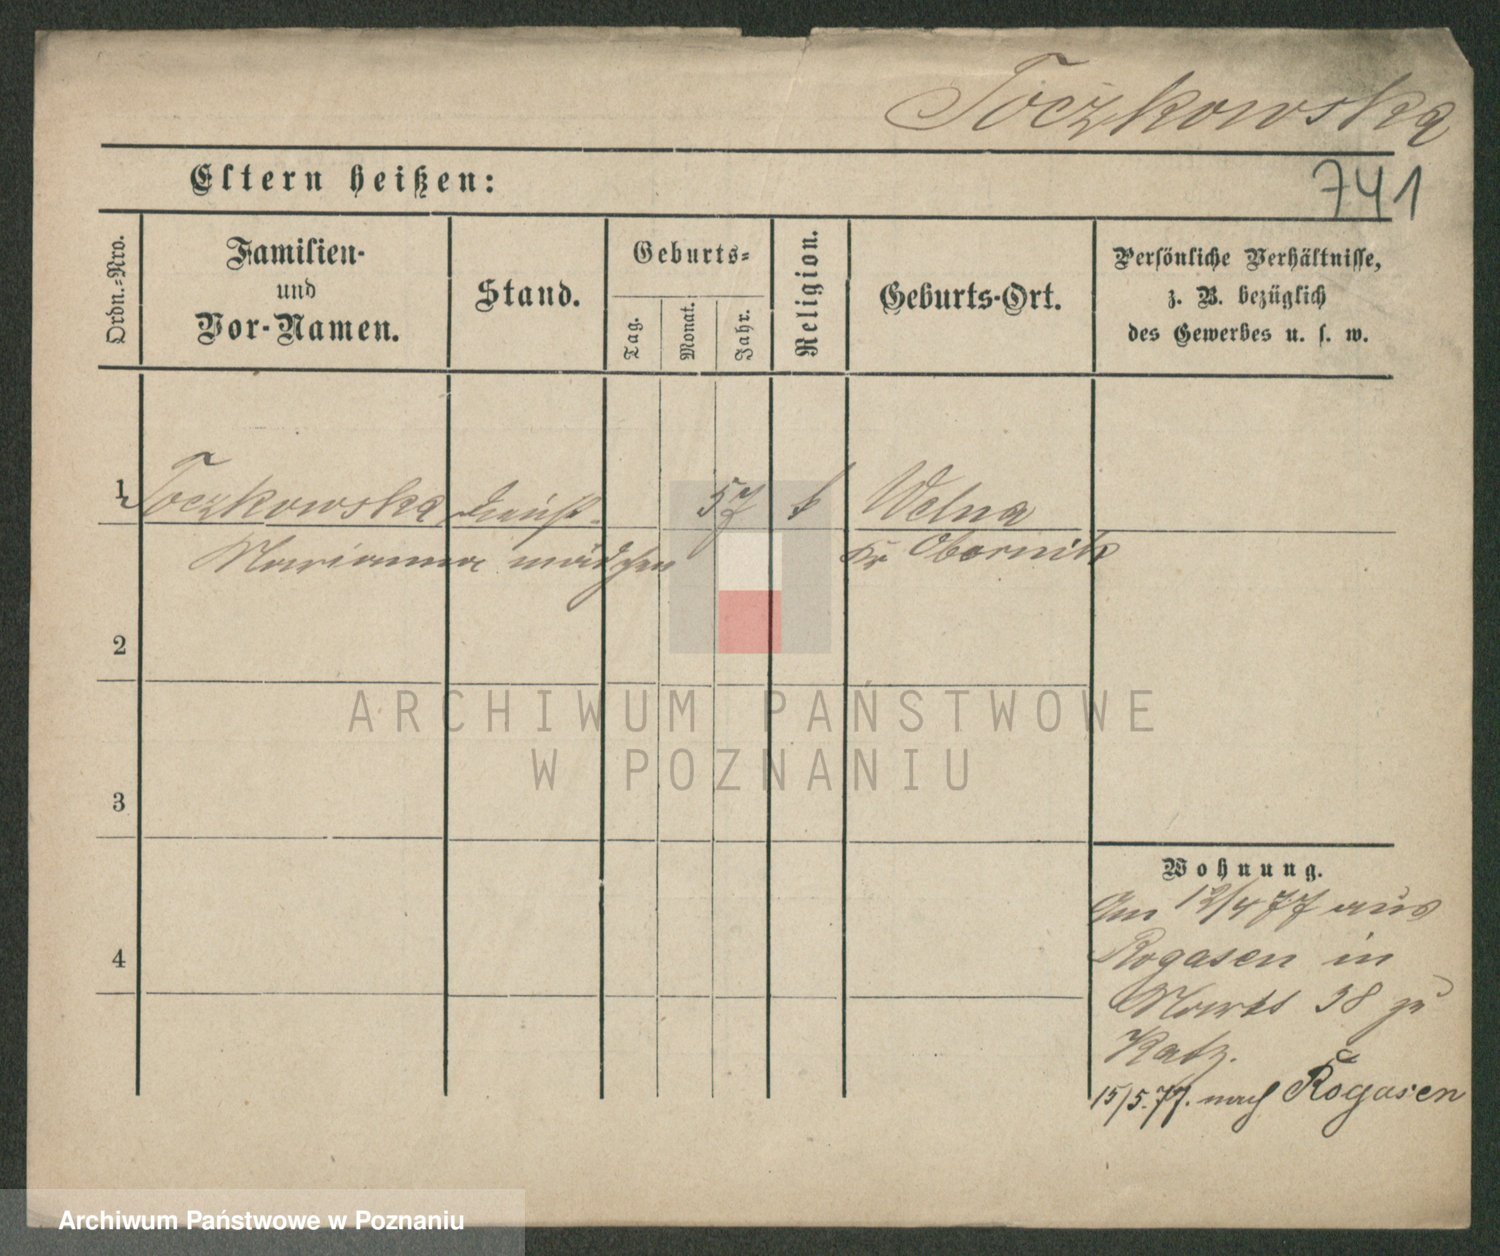 Toczkowska
741
Eltern heißen:
Ordn.-Nro.
Familien-
und
Vor-Namen.
Stand.
Geburts-
Tag.
Monat.
Jahr.
Religion.
Geburts-Ort.
Persönliche Verhältnisse,
z. B. bezüglich
des Gewerbes u. s. w.
1 Toczkowska Dienst- 57 k Welna
Marianna mädchen Kr Obornik
2
3
4
Wohnung.
Am 12/4 77 aus
Rogasen in
Markt 38 zu
Katz.
15/5.77. nach Rogasen
ARCHIWUM PAŃSTWOWE
W POZNANIU
Archiwum Państwowe w Poznaniu